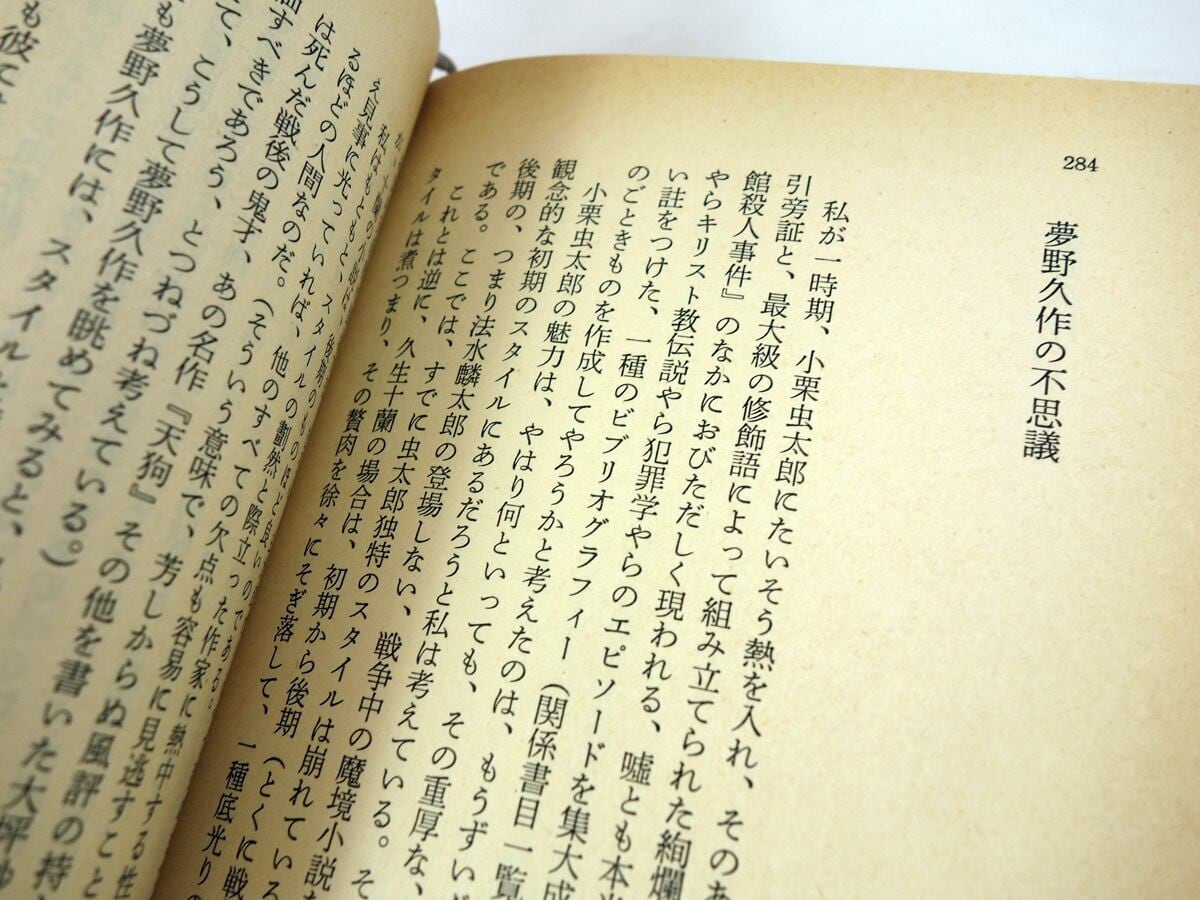 284
夢野久作の不思議
私が一時期、小栗虫太郎にたいそう熱を入れ、そのあ
引旁証と、最大級の修飾語によって組み立てられた絢爛
館殺人事件』のなかにおびただしく現われる、嘘とも本当
やらキリスト教伝説やら犯罪学やらのエピソードを集大成
い註をつけた、一種のビブリオグラフィー（関係書目一覧
のごときものを作成してやろうかと考えたのは、もうずいぶ
小栗虫太郎の魅力は、やはり何といっても、その重厚な、
観念的な初期のスタイルにあるだろうと私は考えている。そ
後期の、つまり法水麟太郎の登場しない、戦争中の魔境小説な
である。ここでは、すでに虫太郎独特のスタイルは崩れている
これとは逆に、久生十蘭の場合は、初期から後期（とくに戦
タイルは煮つまり、その贅肉を徐々にそぎ落して、一種底光りの
スタイルの劃然と際立った作家に熱中する性
え見事に光っていれば、他のすべての欠点も容易に見逃すこと
るほどの人間なのだ。（そういう意味で、芳しからぬ風評の持
は死んだ戦後の鬼才、あの名作『天狗』その他を書いた大坪
すべきであろう、とつねづね考えている。）
て、こうして夢野久作を眺めてみると、
も夢野久作には、スタイル